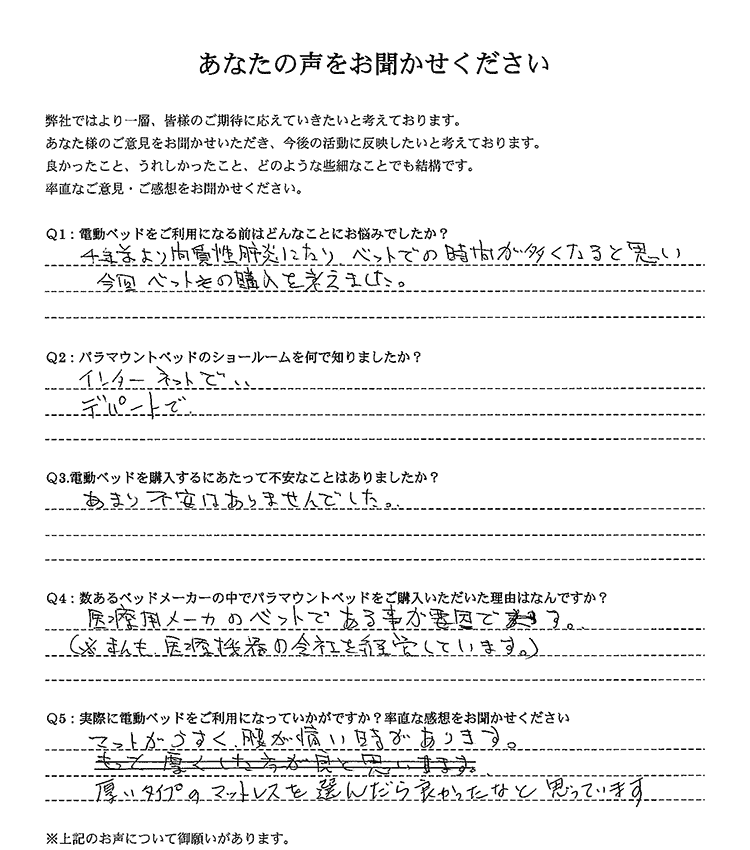 あなたの声をお聞かせください
弊社ではより一層、皆様のご期待に応えていきたいと考えております。
あなた様のご意見をお聞かせいただき、今後の活動に反映したいと考えております。
良かったこと、うれしかったこと、どのような些細なことでも結構です。
率直なご意見・ご感想をお聞かせください。
Q1：電動ベッドをご利用になる前はどんなことにお悩みでしたか？
性肝炎になり、ベットでの時間が多くなると思い
今回 ベットの購入を考えました。
Q2：パラマウントベッドのショールームを何で知りましたか？
インターネットで、、
デパートで
Q3.電動ベッドを購入するにあたって不安なことはありましたか？
あまり不安はありませんでした。
Q4：数あるベッドメーカーの中でパラマウントベッドをご購入いただいた理由はなんですか？
医療用メーカのベットである事が要因です。
(※ 私も、医療機器の会社を経営しています。)
Q5：実際に電動ベッドをご利用になっていかがですか？率直な感想をお聞かせください
マットがうすく、腰が痛い時があります。
もっと厚くした方が良と思います。
厚いタイプのマットレスを選んだら良かったなと思っています
※上記のお声について御願いがあります。